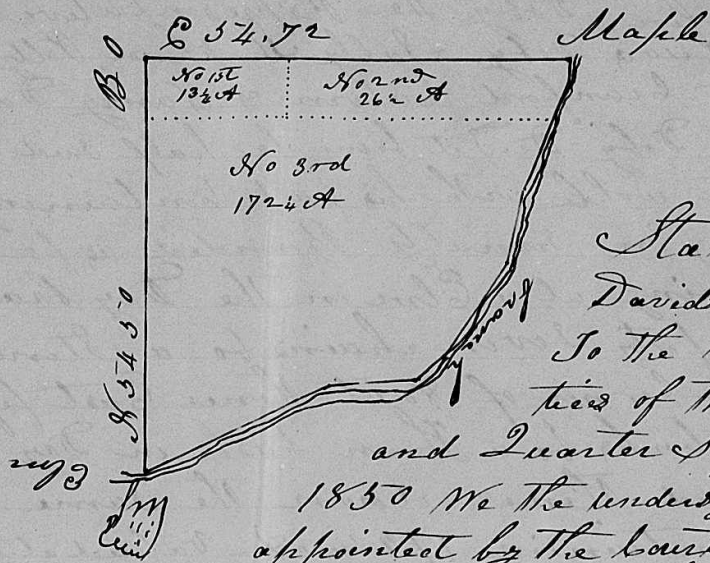 E 54.72 Maple
B O
No 1st
13½ A
No 2nd
26½ A
No 3rd
172¼ A
N 54 50
Elm
Sta
David
To the
ties of th
and Quarter S
1850 We the unders
appointed by the Cour